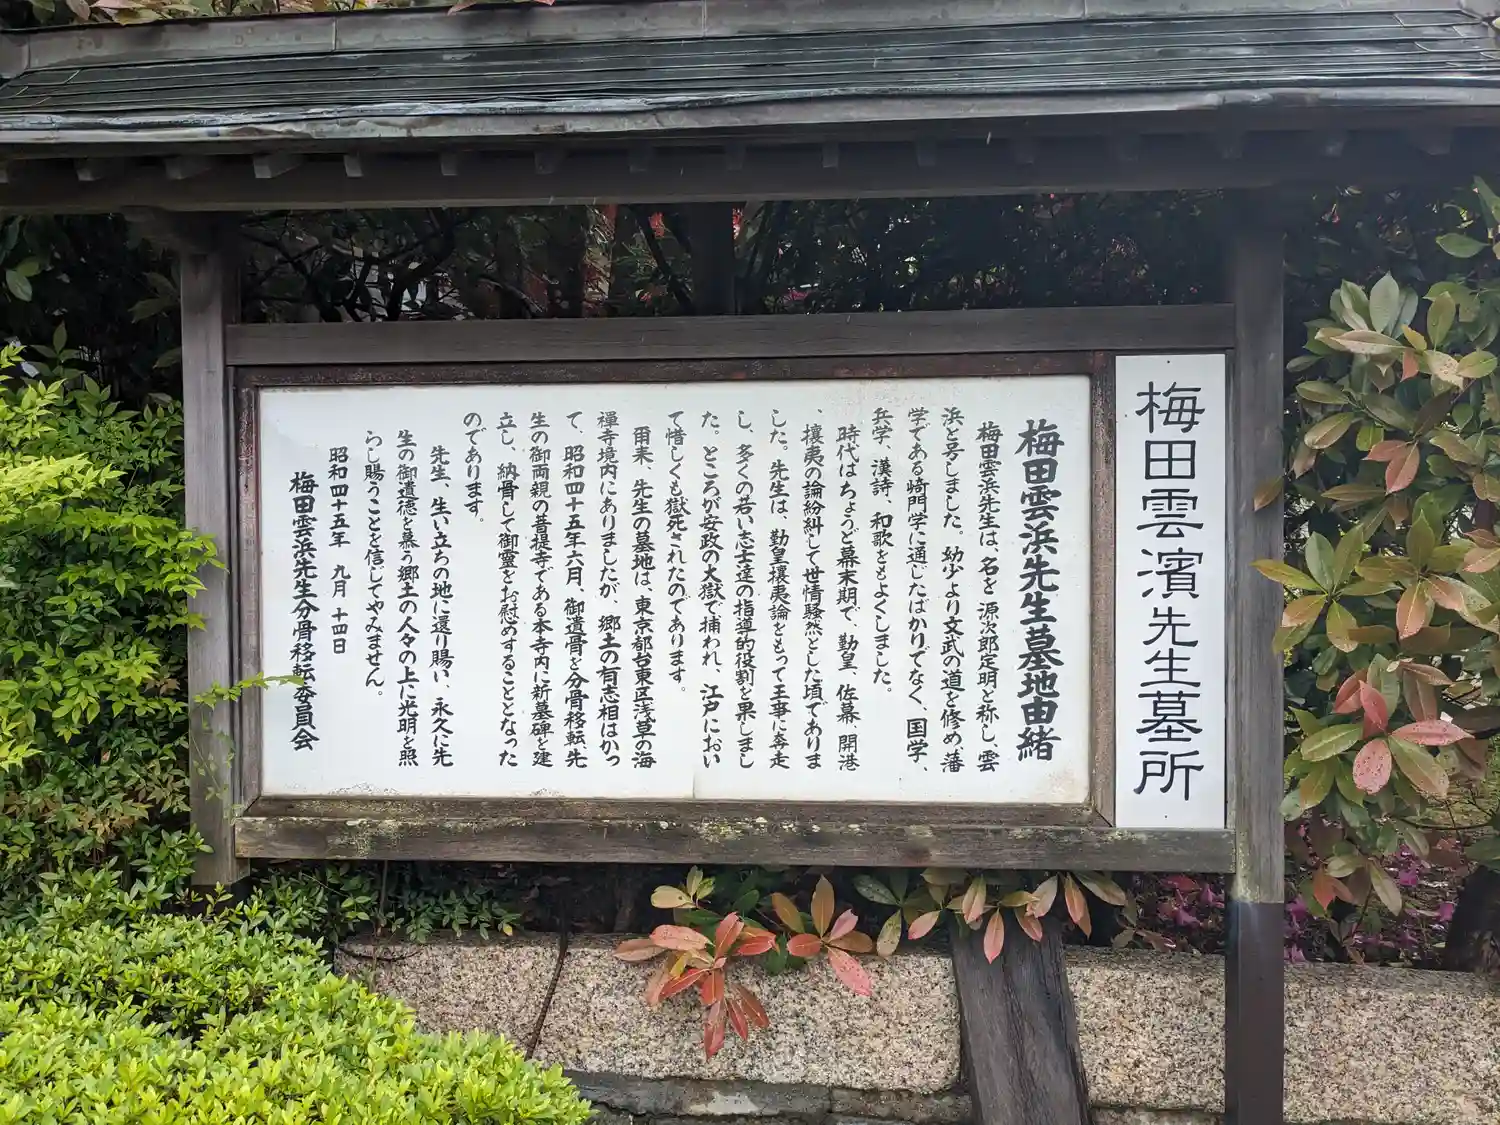 梅田雲濱先生墓所
梅田雲浜先生墓地由緒
梅田雲浜先生は、名を 源次郎定明と称し、雲
浜と号しました。幼少より文武の道を修め、藩
学である﨑門学に通じたばかりでなく、国学、
兵学、漢詩、和歌をもよくしました。
時代はちょうど幕末期で、勤皇、佐幕、開港
、攘夷の論紛糾して世情騒然とした頃でありま
した。先生は、勤皇攘夷論をもって王事に奔走
し、多くの若い志士達の指導的役割を果しまし
た。ところが安政の大獄で捕われ、江戸におい
て惜しくも獄死されたのであります。
爾来、先生の墓地は、東京都台東区浅草の海
禅寺境内にありましたが、郷土の有志相はかっ
て、昭和四十五年六月、御遺骨を分骨移転先
生の御両親の菩提寺である本寺内に新墓碑を建
立し、納骨して御霊をお慰めすることとなった
のであります。
先生、生い立ちの地に還り賜い、永久に先
生の御遺徳を慕う郷土の人々の上に光明を照
らし賜うことを信じてやみません。
昭和四十五年 九月 十四日
梅田雲浜先生分骨移転委員会